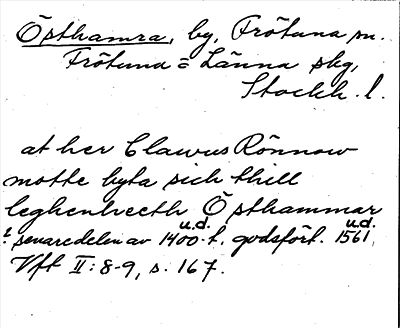 Östhamra, by, Frötuna sn.
Frötuna = Länna skg,
Stockh. l.
at her Clawus Rönnow
motte byta sich thill
leghenheeth Östhammar
u.d. u.d.
senaredelen av 1400-t. godsfört. 1561,
Vft II:8-9, s. 167.